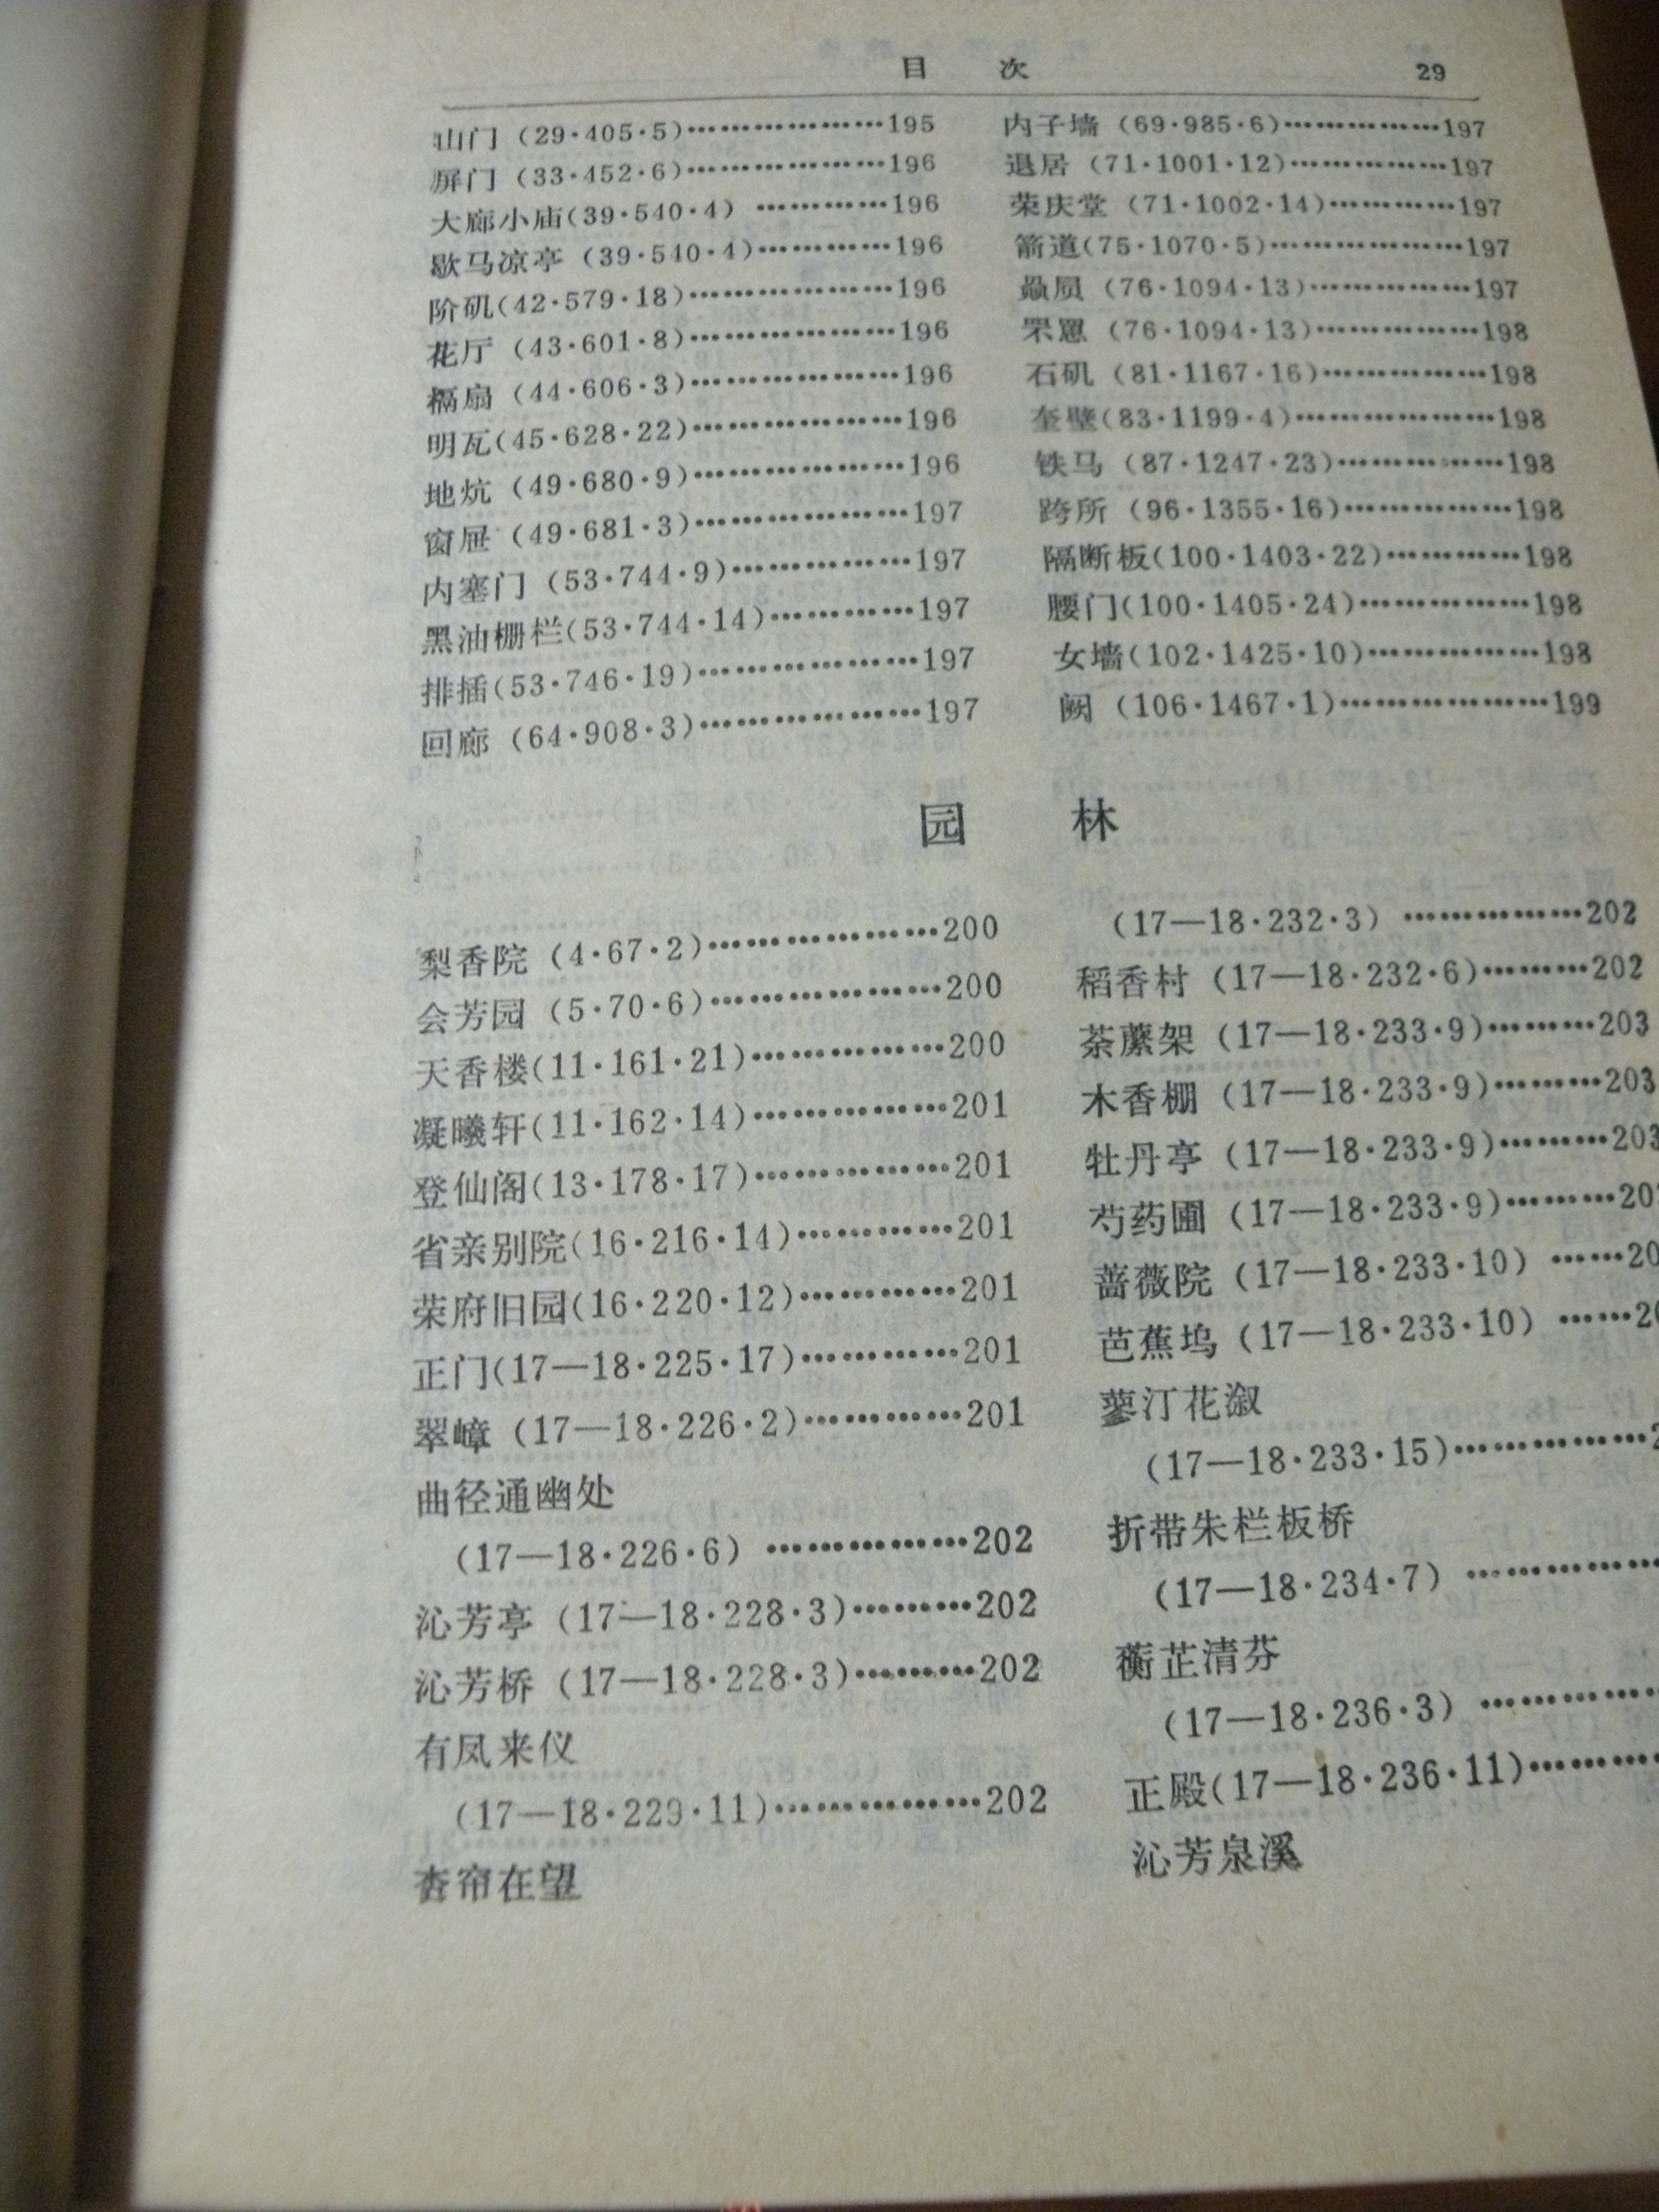 目 次 29
山门 (29·405·5)………………195
屏门 (33·452·6)………………196
大廊小庙(39·540·4) …………196
歇马凉亭 (39·540·4)…………196
阶矶(42·579·18)………………196
花厅 (43·601·8)………………196
槅扇 (44·606·3)………………196
明瓦(45·628·22)………………196
地炕 (49·680·9)………………196
窗屉 (49·681·3)………………197
内塞门 (53·744·9)……………197
黑油栅栏(53·744·14)…………197
排插(53·746·19)………………197
回廊 (64·908·3)………………197
内子墙 (69·985·6)……………197
退居 (71·1001·12)……………197
荣庆堂 (71·1002·14)…………197
箭道(75·1070·5)………………197
赑屃 (76·1094·13)……………197
罘罳 (76·1094·13)……………198
石矶 (81·1167·16)……………198
奎壁(83·1199·4)………………198
铁马 (87·1247·23)……………198
跨所 (96·1355·16)……………198
隔断板(100·1403·22)…………198
腰门(100·1405·24)……………198
女墙(102·1425·10)……………198
阙 (106·1467·1)………………199
园 林
梨香院 (4·67·2)………………200
会芳园 (5·70·6)………………200
天香楼(11·161·21)……………200
凝曦轩(11·162·14)……………201
登仙阁(13·178·17)……………201
省亲别院(16·216·14)…………201
荣府旧园(16·220·12)…………201
正门(17—18·225·17)…………201
翠嶂 (17—18·226·2)…………201
曲径通幽处
(17—18·226·6) ……………202
沁芳亭 (17—18·228·3)………202
沁芳桥 (17—18·228·3)………202
有凤来仪
(17—18·229·11)……………202
杏帘在望
(17—18·232·3) ……………202
稻香村 (17—18·232·6)………202
荼蘼架 (17—18·233·9)………203
木香棚 (17—18·233·9)………203
牡丹亭 (17—18·233·9)………203
芍药圃 (17—18·233·9)………20
蔷薇院 (17—18·233·10) ……20
芭蕉坞 (17—18·233·10) ……2
蓼汀花溆
(17—18·233·15)……………2
折带朱栏板桥
(17—18·234·7) ……………
蘅芷清芬
(17—18·236·3) ……………
正殿(17—18·236·11)…………
沁芳泉溪